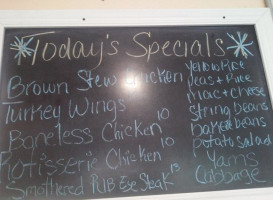 Today's Specials
Brown Stew Chicken
Turkey Wings
Boneless Chicken 10
Rotisserie Chicken 10
Smothered RIB Eye Steak 15
Yellow Rice
Peas + Rice
Mac + Cheese
String beans
baked beans
potato salad
Yams
Cabbage